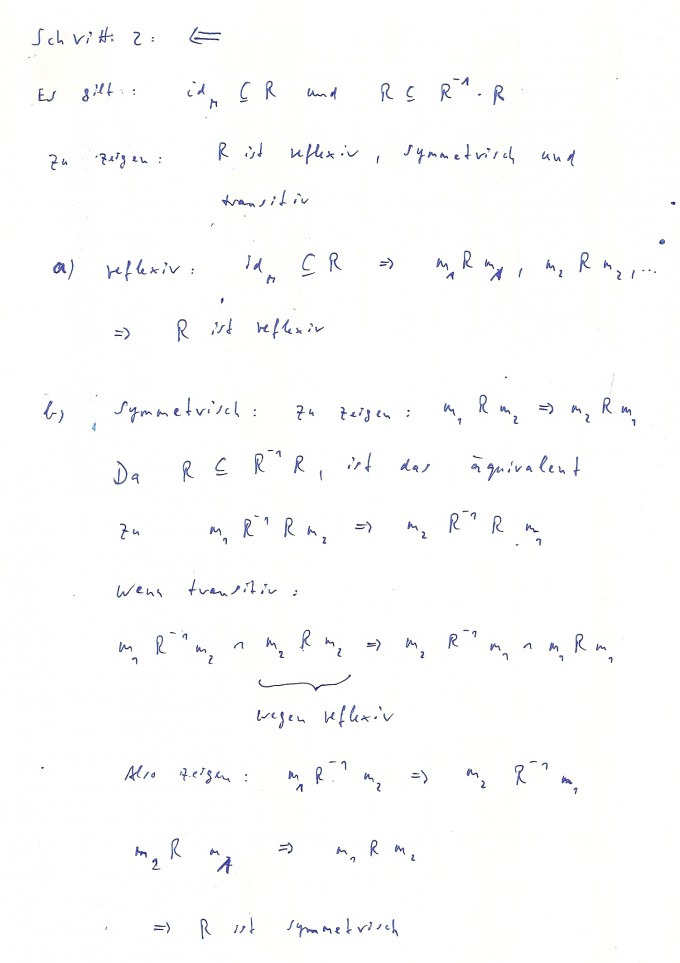 Schritt 2: ⇐
Es gilt: id_M ⊆ R und R ⊆ R⁻¹ · R
Zu zeigen: R ist reflexiv, symmetrisch und
transitiv
a) reflexiv: id_M ⊆ R ⇒ m₁ R m₁, m₂ R m₂, ...
⇒ R ist reflexiv
b) Symmetrisch: Zu zeigen: m₁ R m₂ ⇒ m₂ R m₁
Da R ⊆ R⁻¹ R, ist das äquivalent
zu m₁ R⁻¹ R m₂ ⇒ m₂ R⁻¹ R m₁
Wenn transitiv:
m₁ R⁻¹ m₂ ∧ m₂ R m₂ ⇒ m₂ R⁻¹ m₁ ∧ m₁ R m₁
wegen reflexiv
Also zeigen: m₁ R⁻¹ m₂ ⇒ m₂ R⁻¹ m₁
m₂ R m₁ ⇒ m₁ R m₂
⇒ R ist symmetrisch